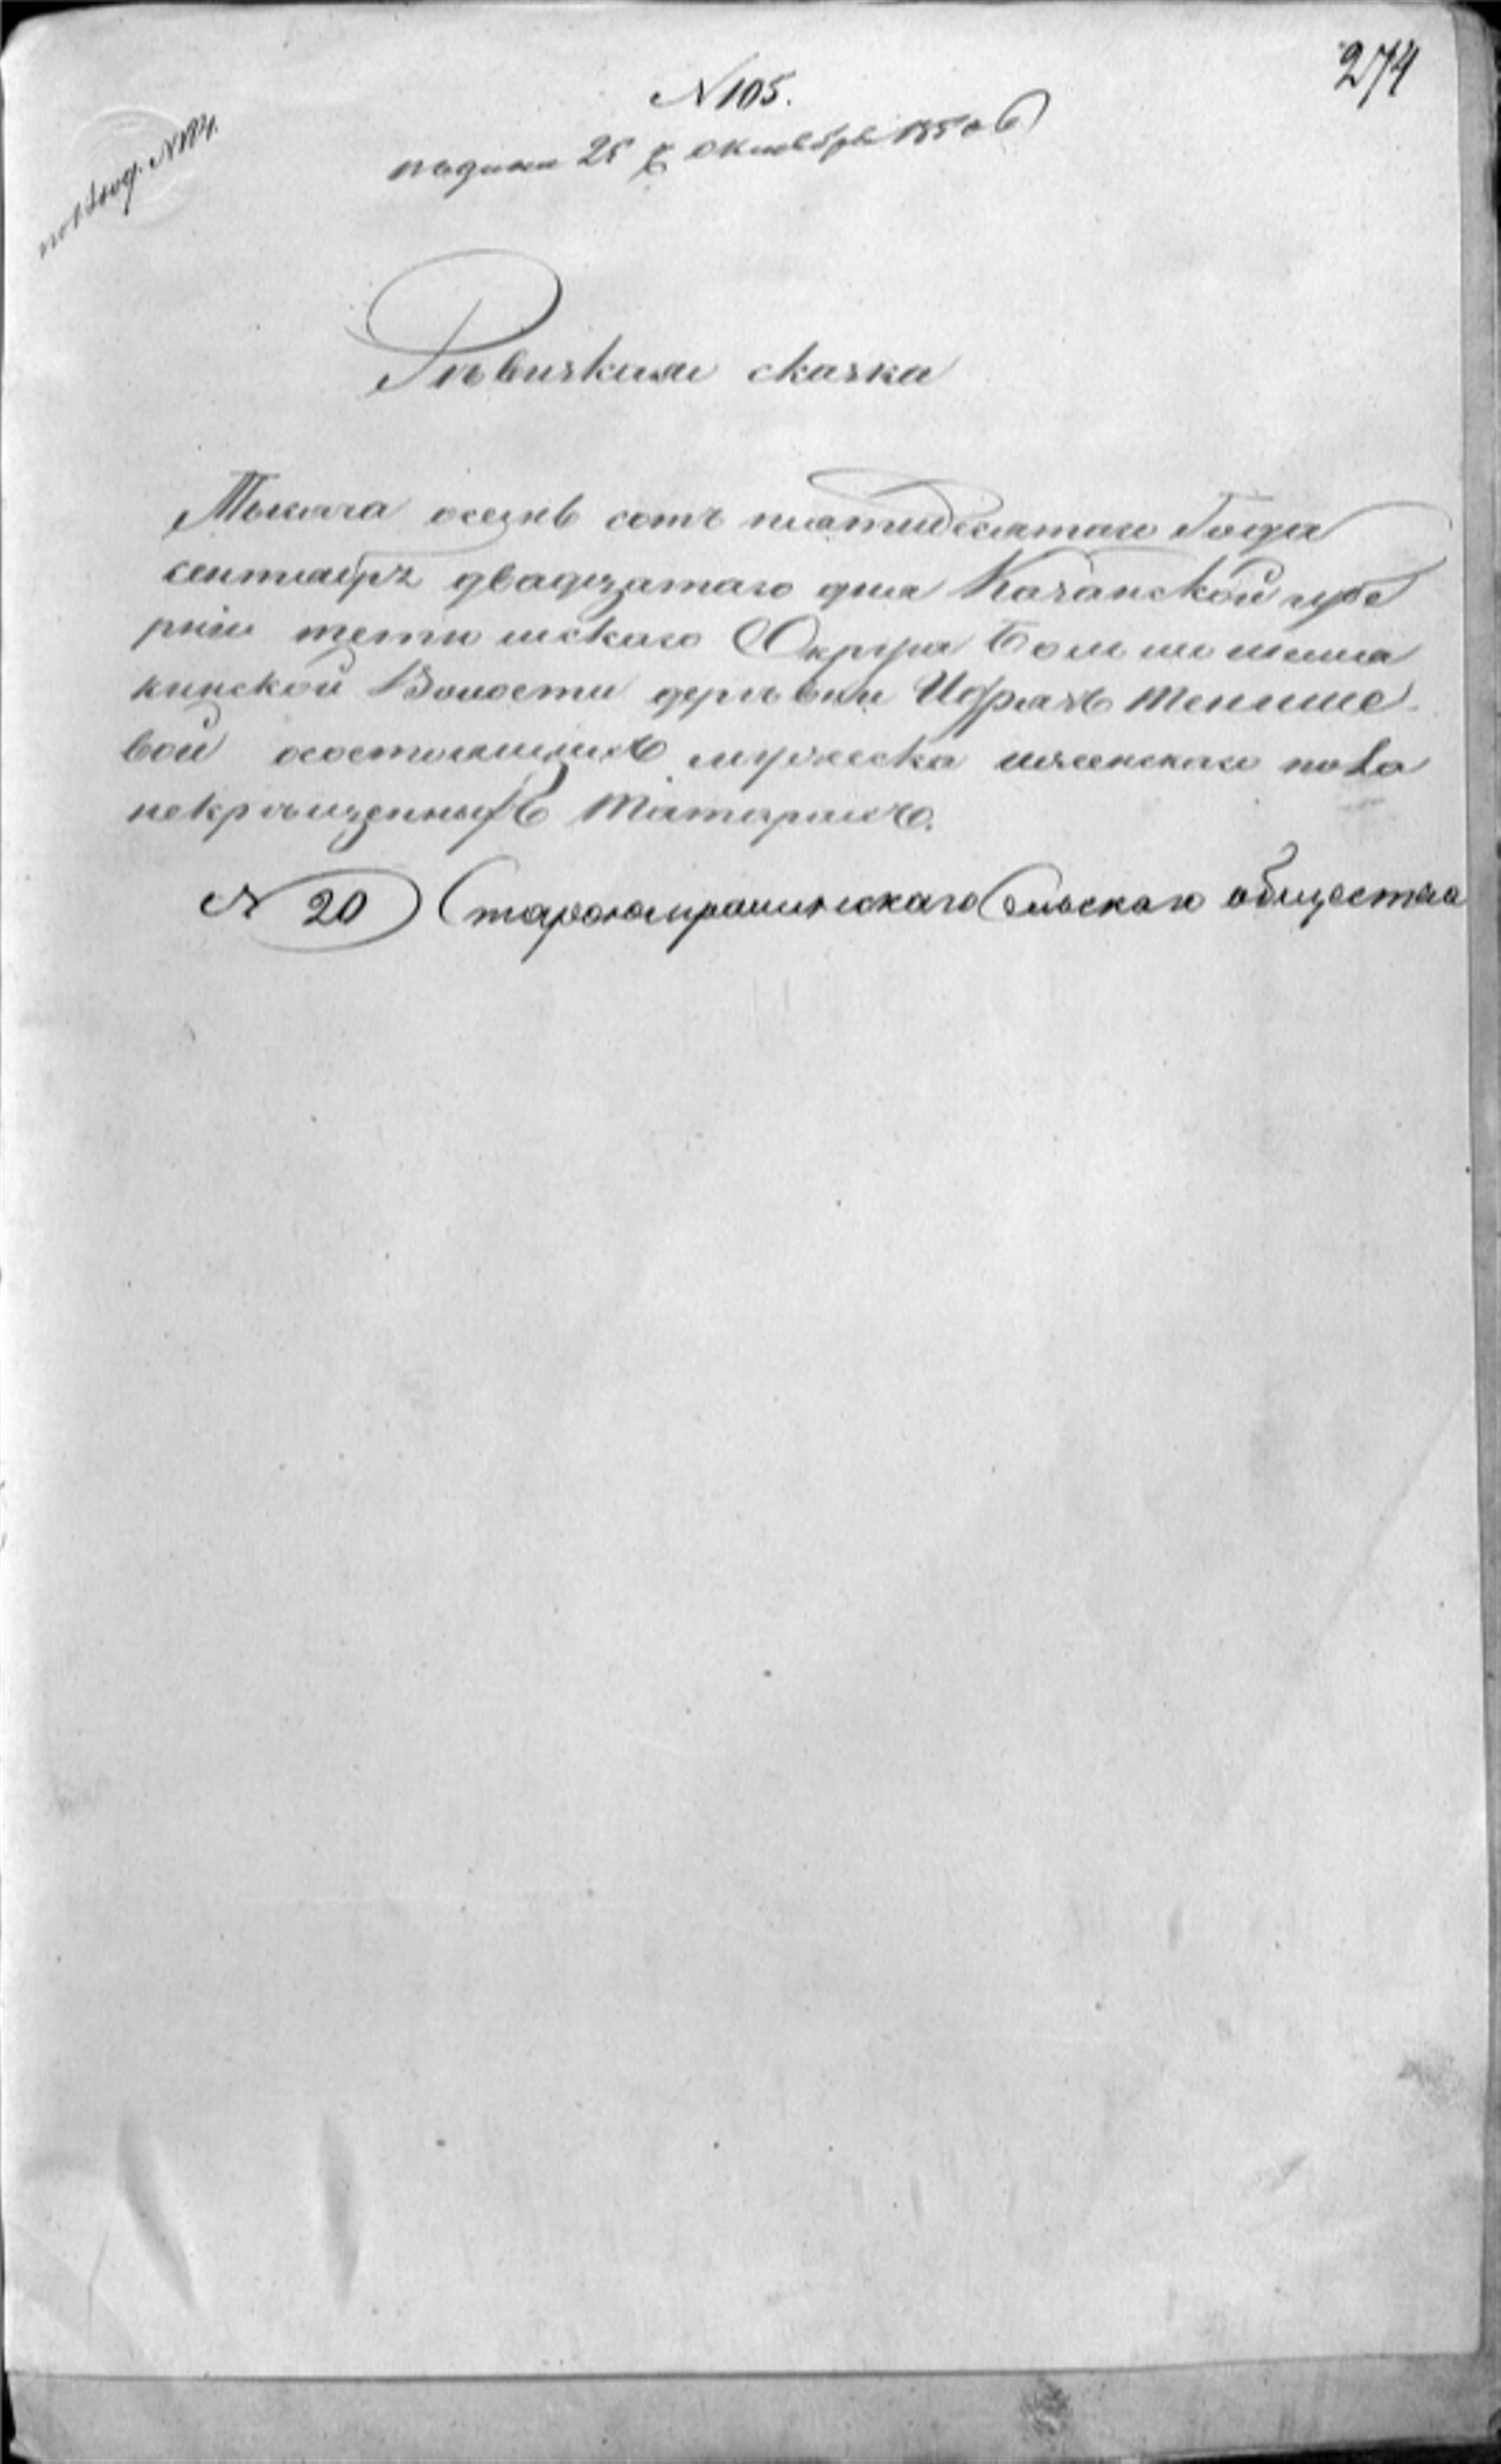 274
N 105.
подана 25 октября 1850 г
по 1 N 184.
Рѣвизская сказка
Тысяча осемь сотъ пятидесятаго Года
сентябрь двадцатаго дня Казанской губе
рніи тетюшскаго Округа Больше шемя
кинской Волости деревни Ибрязь Тенише
вой осостоящихъ мужеска иженскаго пола
некрѣщенныхъ Татарахъ.
N 20 Староильскаго общества